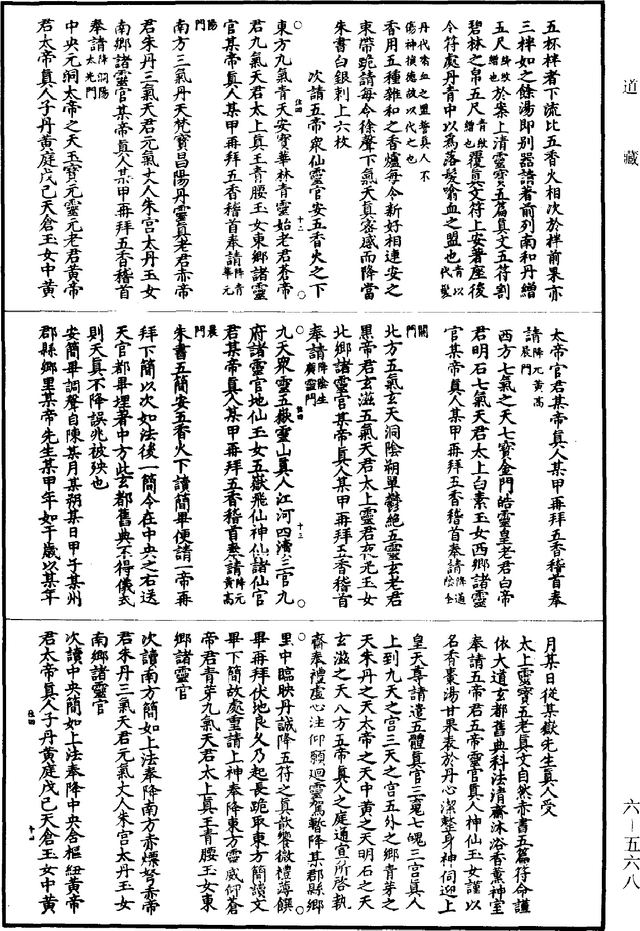 道藏
五杯柈者下流比五香火相次於柈前果亦
三柈如之餘湯即别器請者前列南和丹繒
五尺降敗繒也於案上清靈寶五篇真文五符割
碧林之帛五尺青敗繒也覆真文符上安著座後
令符處丹青中以為落髮㰱血之盟也青以代髮
丹代㰱血之盟誓真人不傷神損德故以代之也
香用五種雜和之香爐每令新好相連安之
束帶跪請每令徐聲下氣天真密感而降當
朱書白銀刺上六枚
次請五帝衆仙靈官安五香火之下
東方九氣青天安寶華林青靈始老君蒼帝
君九氣天君太上真王青腰玉女東鄉諸靈
官某帝真人某甲再拜五香稽首奉請降青華元
陽門
南方三氣丹天梵寶昌陽丹靈真老君赤帝
君朱丹三氣天君元氣丈人朱宫太丹玉女
南鄉諸靈官某帝真人某甲再拜五香稽首
奉請降洞陽太光門
中央元洞太帝之天玉寶元靈元老君黄帝
君太帝真人子丹黄庭戊己天倉玉女中黄
太帝官君某帝真人某甲再拜五香稽首奉
請降元黄高晨門
西方七氣之天七寶金門皓靈皇老君白帝
君明石七氣天君太上白素玉女西鄉諸靈
官某帝真人某甲再拜五香稽首奉請降通陰金
闕門
北方五氣玄天洞陰朔單鬱絶五靈玄老君
黑帝君玄滋五氣天君太上靈君夜光玉女
北鄉諸靈官某帝真人某甲再拜五香稽首
奉請降陰生廣靈門
九天衆靈五嶽靈山真人江河四瀆三官九
府諸靈官地仙玉女五嶽飛仙神仙諸仙官
君某帝真人某甲再拜五香稽首奉請降元黄高
晨門
朱書五簡安五香火下讀簡畢便請一帝再
拜下簡以次如法後一簡令在中央之右送
天官都畢埋著中方此玄都舊典不得儀式
則天真不降誤兆被殃也
安簡畢調聲自陳某月某朔某日甲子某州
郡縣鄉里某帝先生某甲年如干歲以某年
月某日從某嶽先生真人受
太上靈寶五老真文自然赤書五篇符命謹
依大道玄都舊典科法清齋沐浴香薰神室
奉請五帝君五帝靈官真人神仙玉女謹以
名香棗湯甘果表於丹心潔整身神伺迎上
皇天尊請遣五體真官三䰟七魄三宫真人
上到九天之宫三天之宫五外之鄉青芽之
天朱丹之天太帝之天中黄之天明石之天
玄滋之天八方五帝真人之庭通宣所啓執
齋奉禮虚心注仰願廻靈駕暫降某郡縣鄉
里中臨映丹誠降五符之真歆饗微禮薄饌
畢再拜伏地良久乃起長跪取東方簡讀文
畢下簡故處重請上神奉降東方靈威仰蒼
帝君青芽九氣天君太上真王青腰玉女東
鄉諸靈官
次讀南方簡如上法奉降南方赤熛弩赤帝
君朱丹三氣天君元氣丈人朱宫太丹玉女
南鄉諸靈官
次讀中央簡如上法奉降中央含樞紐黄帝
君太帝真人子丹黄庭戊己天倉玉女中黄
六—五六八